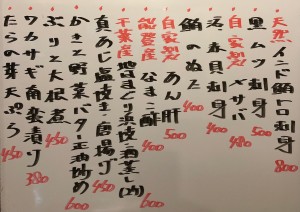 天然 インド鮪トロ刺身 800
黒ムツ刺身 500
自家製 〆サバ 480
活 赤貝刺身 700
鮪のぬた 400
自家製 あん肝 500
能登産 なまこ酢 400
千葉産 皆まぐり浜焼・酒蒸し(2ケ) 600
真あじ塩焼き・唐揚げ 450
かきと野菜バター正油炒め 600
ぶりと大根煮 450
ワカサギ南蛮漬け 380
たらの芽天ぷら 450